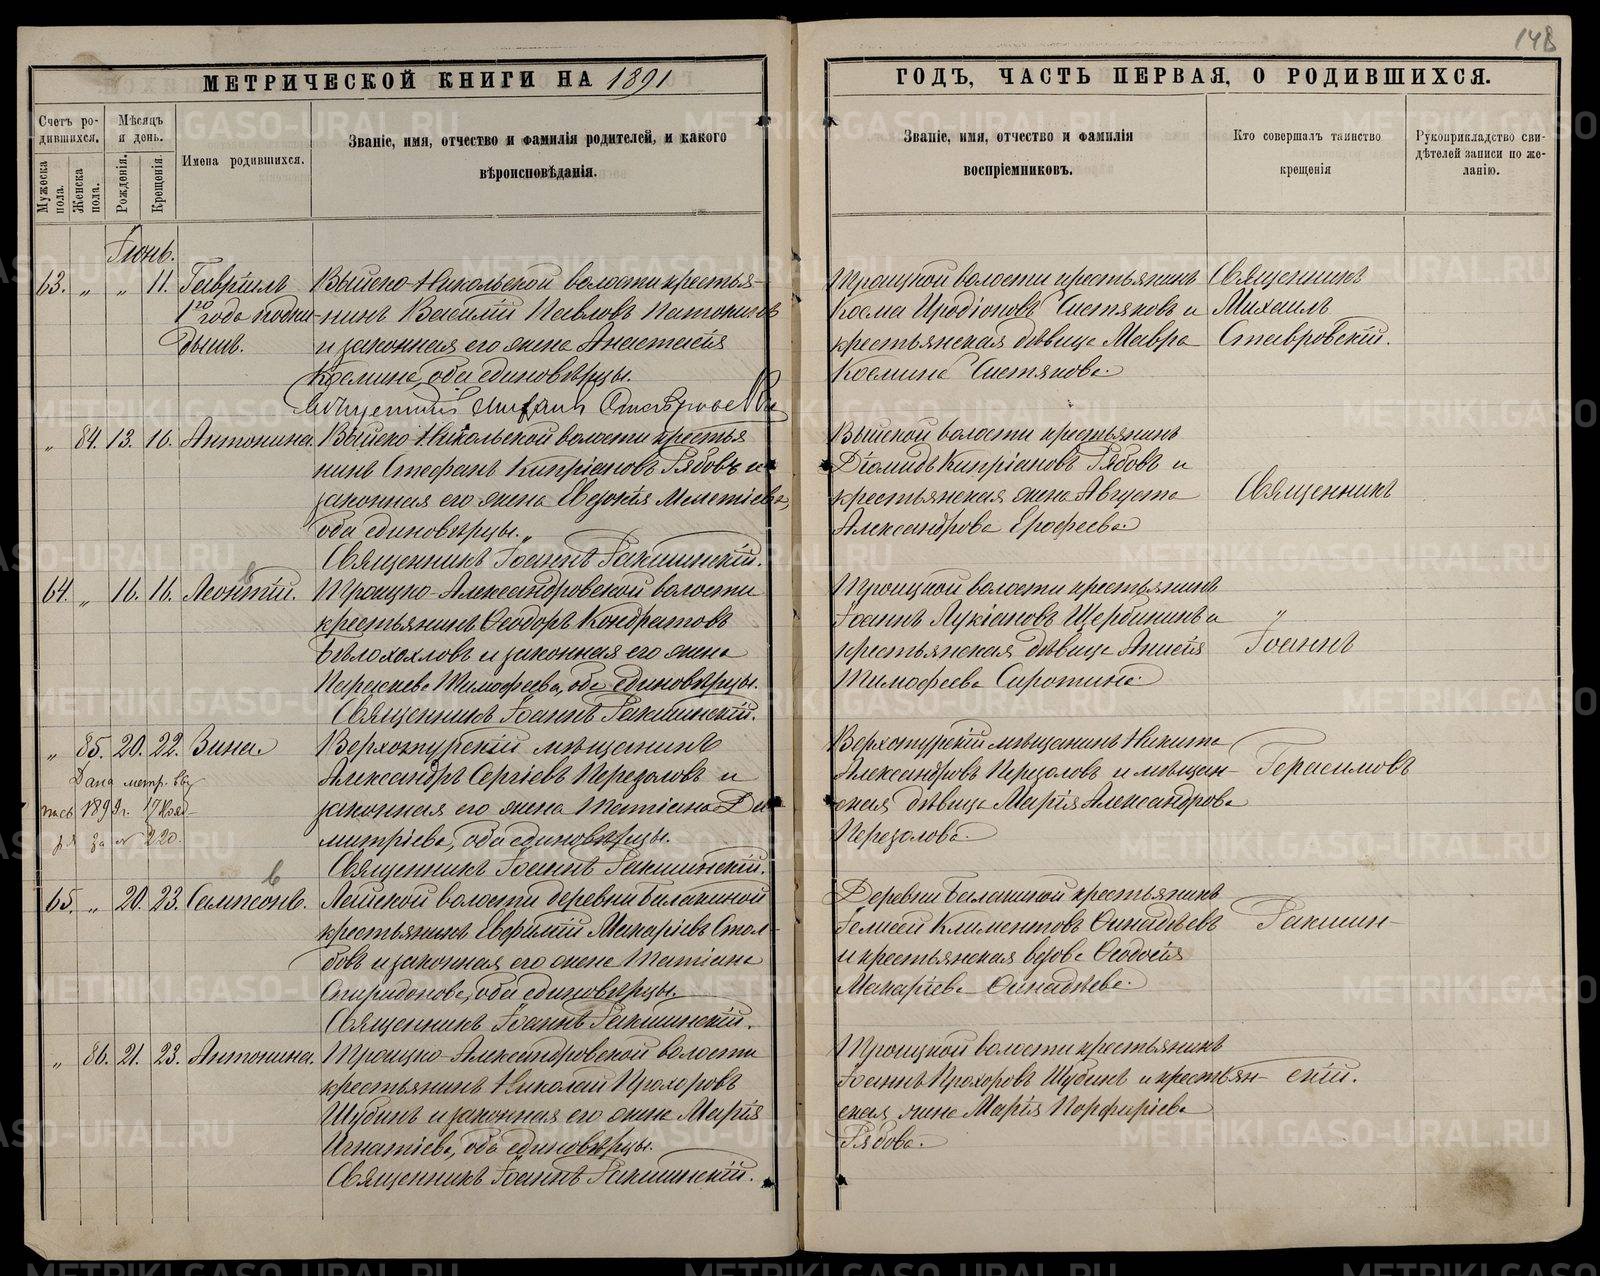 148
МЕТРИЧЕСКОЙ КНИГИ НА 1891
Счетъ ро-
дившихся.
Мужеска пола.
Женска пола.
Мѣсяцъ
и день.
Рожденія.
Крещенія.
Имена родившихся.
Званіе, имя, отчество и фамилія родителей, и какого
вѣроисповѣданія.
Іюнь.
63. „ „ 11. Гавріилъ
1го года
Выйско-Никольской волости крестья-
нинъ Василій Павловъ
и законная его жена Анастасія
Космина, оба единовѣрцы.
Священникъ Михаилъ
„ 84. 13. 16. Антонина.
Выйско-Никольской волости крестья
нинъ Стефанъ Кипріановъ Рябовъ и
законная его жена Евдокія Мелетіева,
оба единовѣрцы. „
Священникъ Іоаннъ
64. „ 16. 16. Леонтій.
Троицко-Александровской волости
крестьянинъ Ѳеодоръ Кондратовъ
Бѣлохохловъ и законная его жена
Параскева Тимофеева, оба единовѣрцы.
Священникъ Іоаннъ
„ 85. 20. 22. Зина.
Дана метр. вы
пись 189 г. 17
за № 220.
Верхотурскій мѣщанинъ
Александръ Сергіевъ Перезоловъ и
законная его жена Татіана Ди
митріева, оба единовѣрцы.
Священникъ Іоаннъ
65. „ 20. 23. Сампсонъ.
Лайской волости деревни Балакиной
крестьянинъ Евфимій Макаріевъ Стол-
бовъ и законная его жена Татіана
Спиридонова, оба единовѣрцы.
Священникъ Іоаннъ
„ 86. 21. 23. Антонина.
Троицко-Александровской волости
крестьянинъ Николай Прохоровъ
Шубинъ и законная его жена Марія
Игнатіева, оба единовѣрцы.
Священникъ Іоаннъ
ГОДЪ, ЧАСТЬ ПЕРВАЯ, О РОДИВШИХСЯ.
Званіе, имя, отчество и фамилія
воспріемниковъ.
Кто совершалъ таинство
крещенія
Рукоприкладство сви-
дѣтелей записи по же-
ланію.
Троицкой волости крестьянинъ
Косма Иродіоновъ Чистяковъ и
крестьянская дѣвица Мавра
Космина Чистякова.
Священникъ
Михаилъ
Ставровскій.
Выйской волости крестьянинъ
Діомидъ Кипріановъ Рябовъ и
крестьянская жена Августа
Александрова Ерофеева.
Священникъ
Троицкой волости крестьянинъ
Іоаннъ Лукіановъ Щербининъ и
крестьянская дѣвица Анисія
Тимофеева Сиротина.
„
Іоаннъ
Верхотурскій мѣщанинъ Никита
Александровъ Перезоловъ и мѣщан-
ская дѣвица Марія Александрова
Перезолова.
Герасимовъ
Деревни Балакиной крестьянинъ
Елисей Климентовъ
и крестьянская вдова Ѳеодосія
Макаріева
Троицкой волости крестьянинъ
Іоаннъ Прохоровъ Шубинъ и крестьян-
ская жена Марія Порфиріева
Рябова.
скій.
METRIKI.GASO-URAL.RU